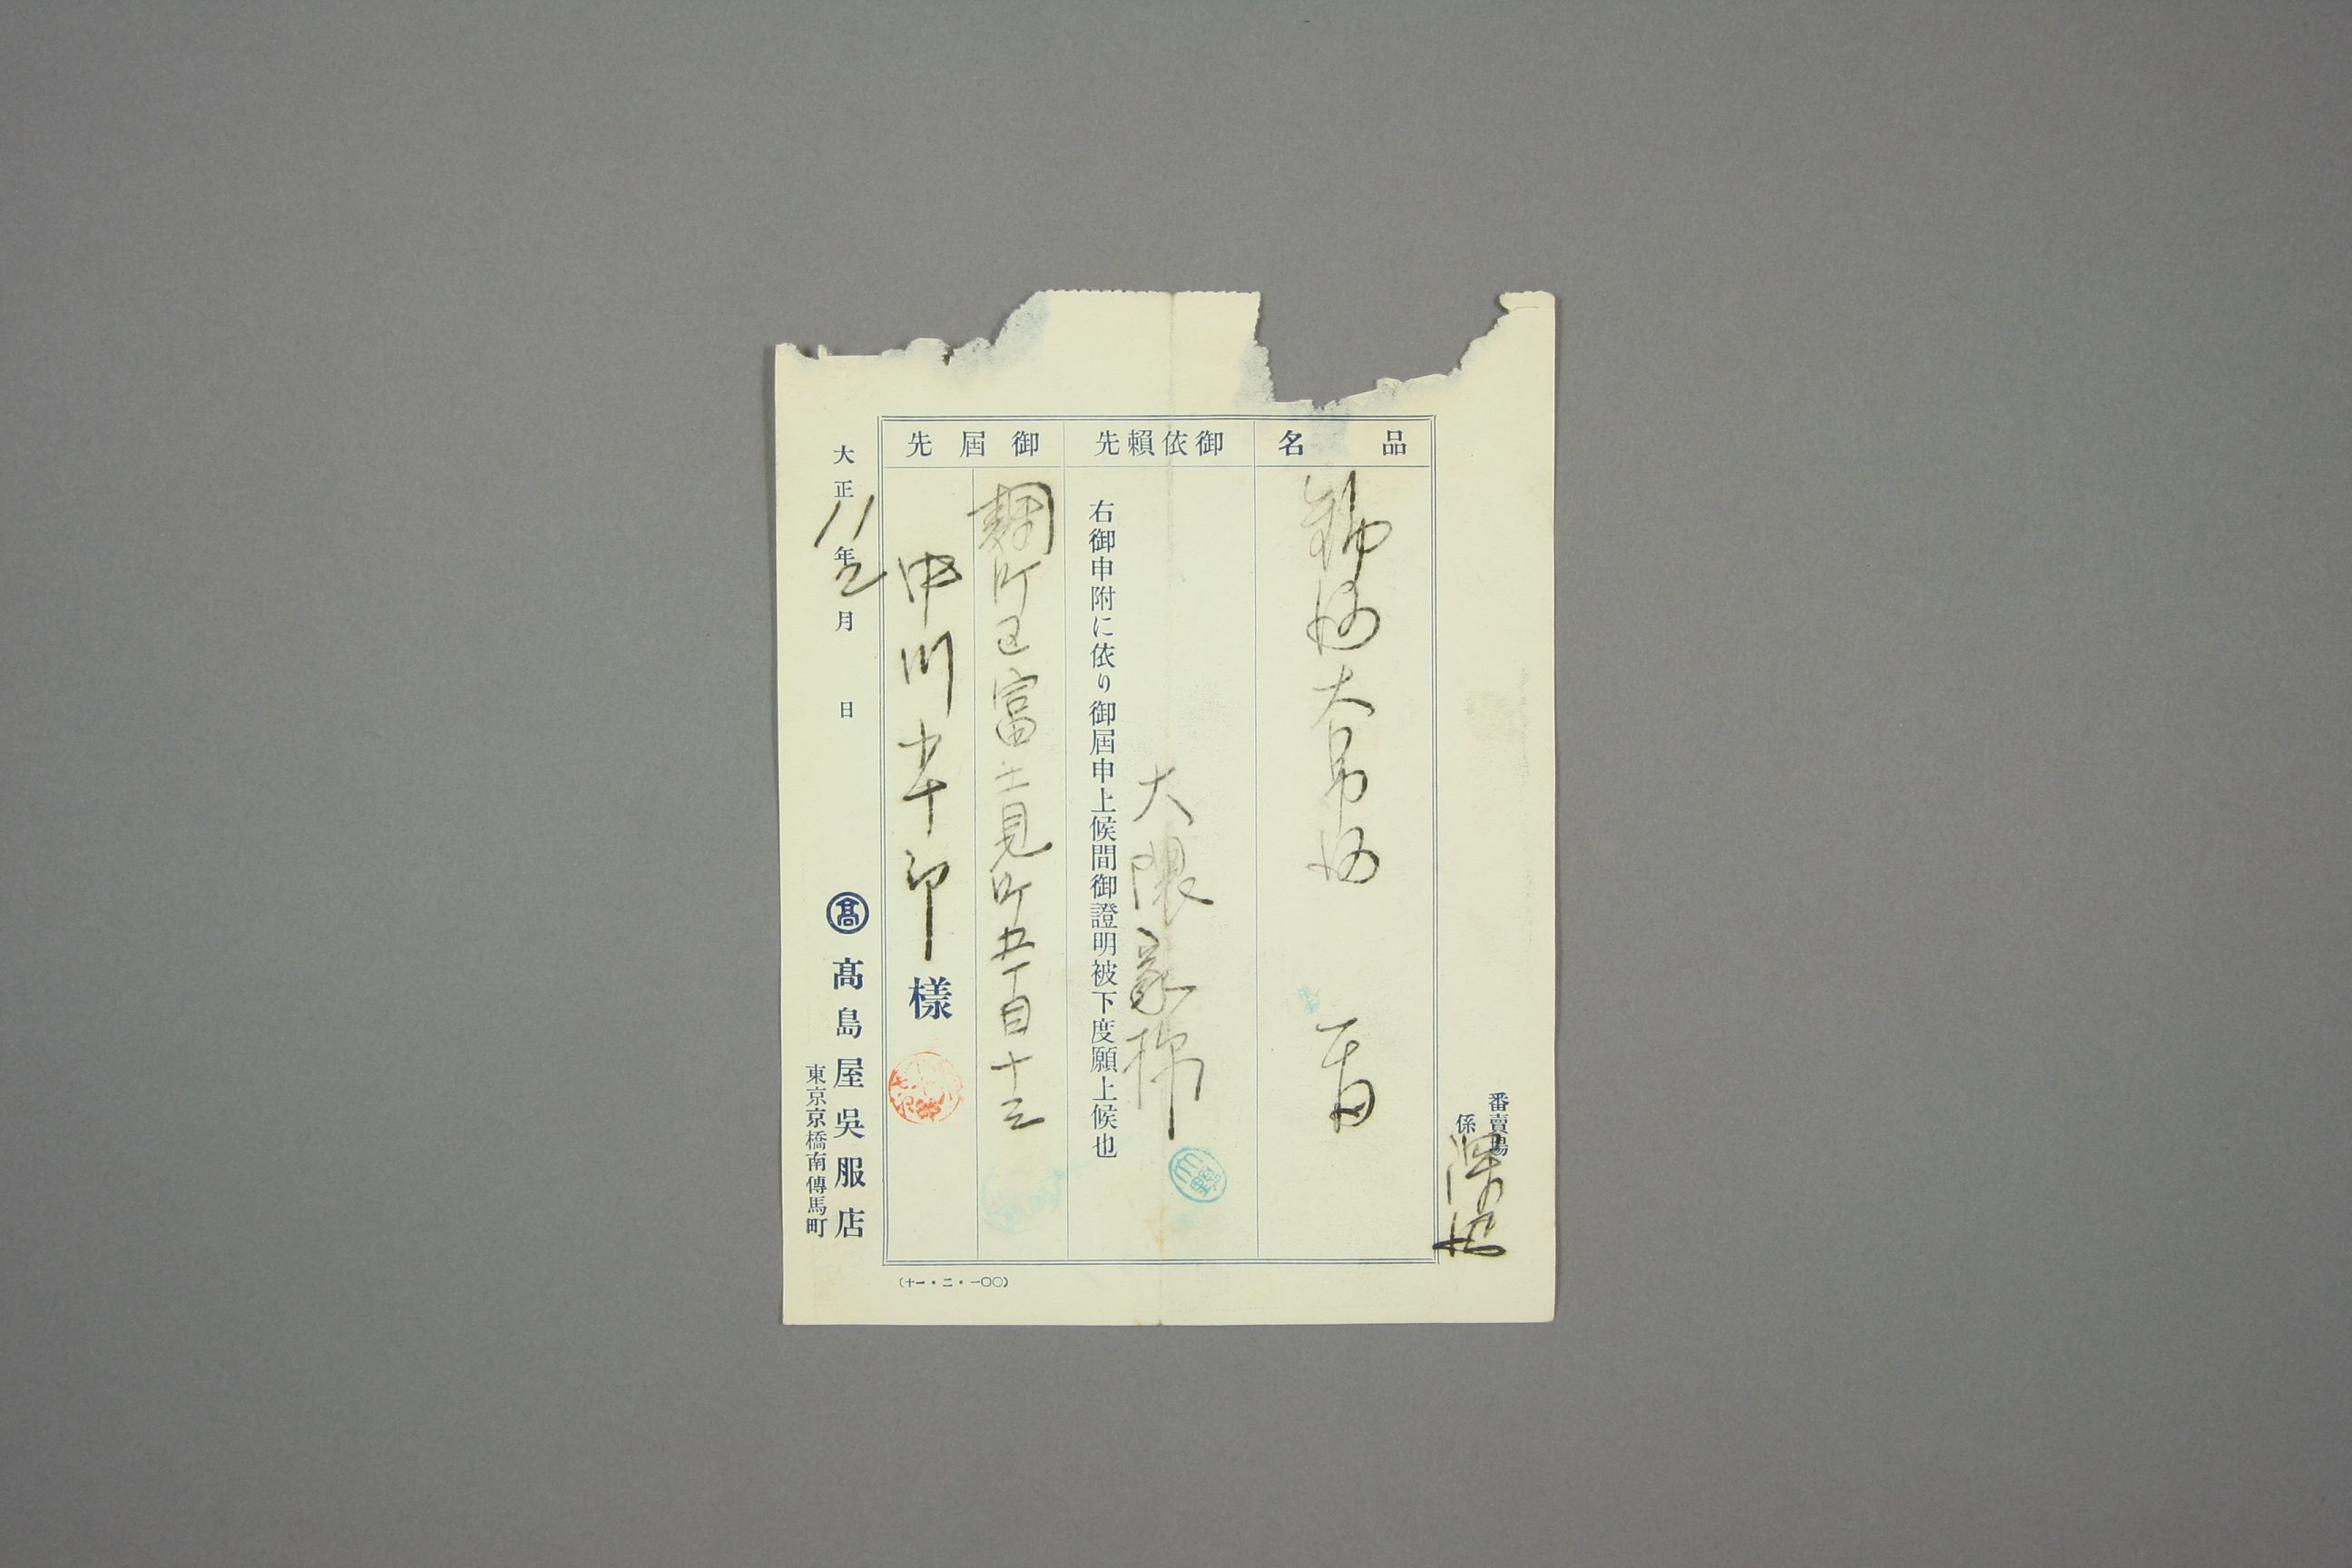 番賣場
係
品名
大
御依賴先
大隈家様
右御申附に依り御屆申上候間御證明被下度願上候也
御屆先
麹町区富士見町五丁目十三
中川半
樣
大正11年2月日
髙
髙島屋吳服店
東京京橋南傳馬町
(十一・二・一〇〇)